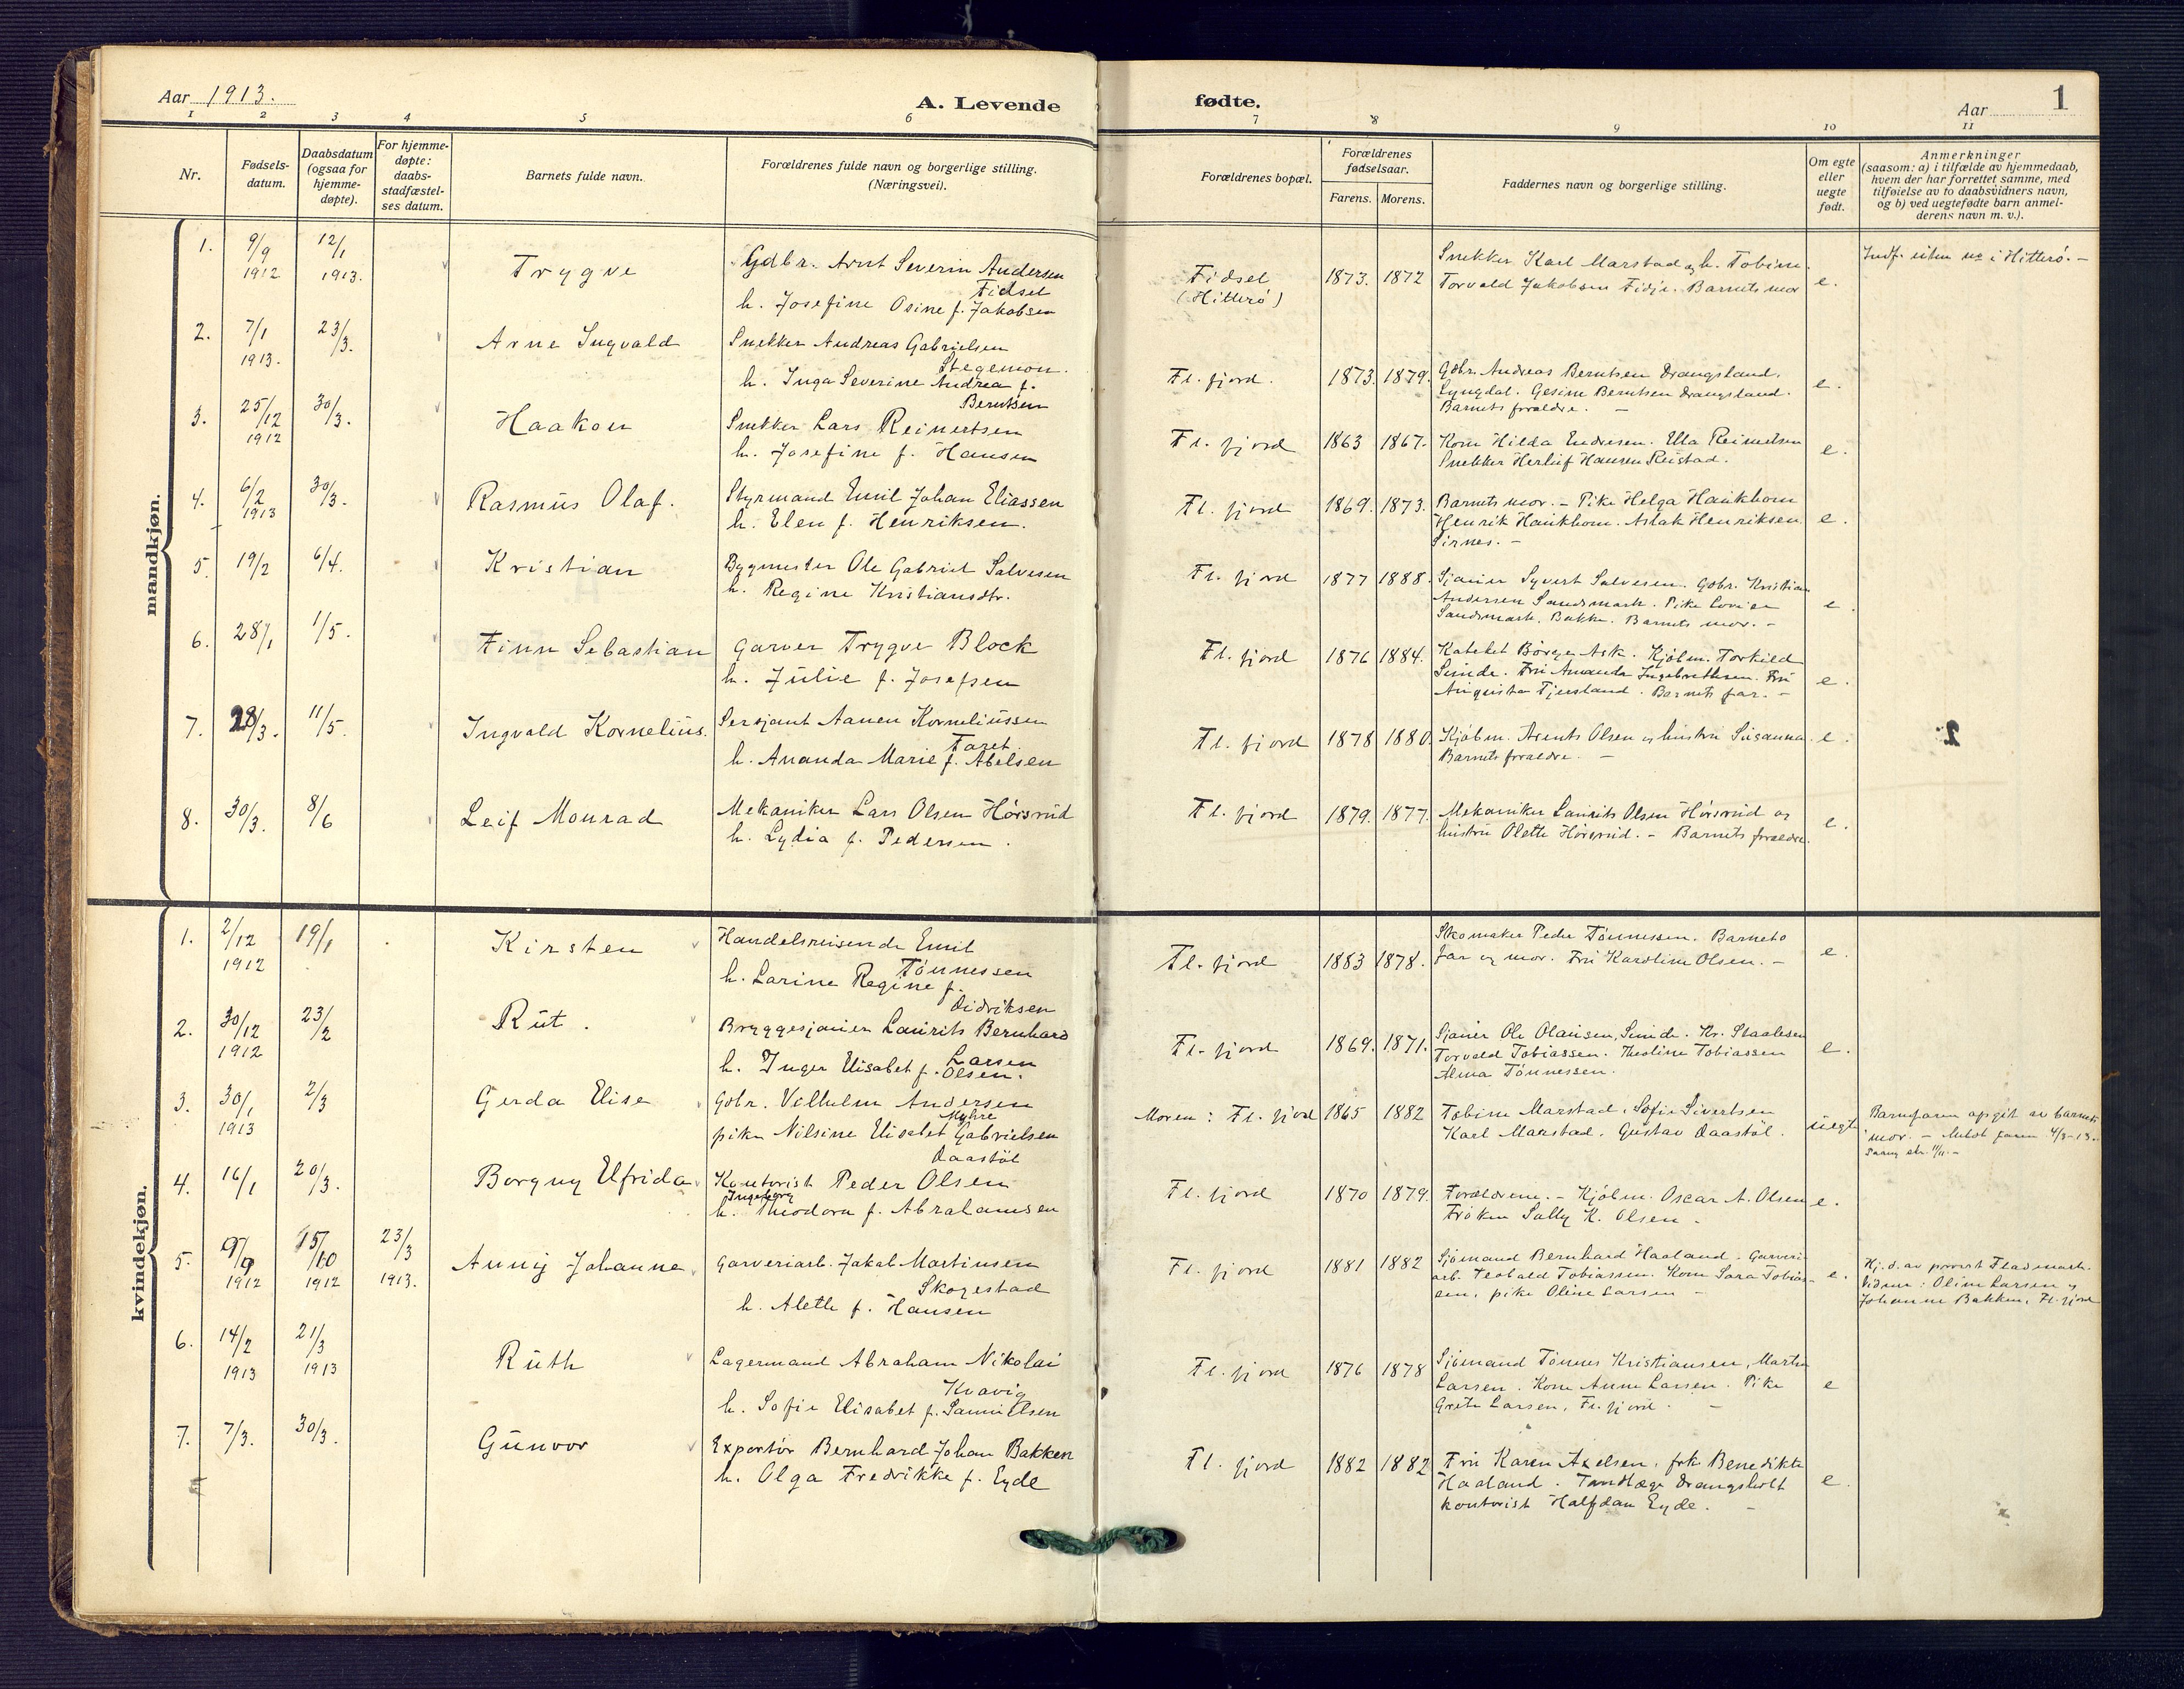 Aar 1913.
A. Levende
fødte.
Aar
1
1 2 3 4 5 6 7 8 9 10 11
Nr.
Fødsels-
datum.
Daabsdatum
(ogsaa for
hjemme-
døpte).
For hjemme-
døpte:
daabs-
stadfæstel-
ses datum.
Barnets fulde navn.
Forældrenes fulde navn og borgerlige stilling.
(Næringsvei).
Forældrenes bopæl.
Forældrenes
fødselsaar.
Farens. Morens.
Faddernes navn og borgerlige stilling.
Om egte
eller
uegte
født.
Anmerkninger
(saasom: a) i tilfælde av hjemmedaab,
hvem der har forrettet samme, med
tilføielse av to daabsvidners navn,
og b) ved uegtefødte barn anmel-
derens navn m. v.).
mandkjøn.
1. 9/9 1912 12/1 1913. Trygve
Gdbr. Arnt Severin Andersen
Fidsel
h. Josefine Osine f. Jakobsen
Fidsel
(Hitterø)
1873. 1872
Snekker Karl Marstad og h. Tobine.
Torvald Jakobsen Fidje. Barnets mor
e.
Indf. uten no i Hitterø. -
2. 7/1 1913. 23/3. Arne Ingvald
Snekker Andreas Gabrielsen
Stegemon.
h. Inga Severine Andrea f.
Berntsen
Fl. fjord.
1873. 1879.
Gdbr. Andreas Berntsen Drangsland.
Lyngdal. Gesine Berntsen Drangsland.
Barnets forældre. -
e.
3. 25/12 1912 30/3. Haakon
Snekker Lars Reinertsen
h. Josefine f. Hansen
Fl. fjord
1863 1867.
Kone Hilda Endresen. Ella Reinertsen
Snekker Herluf Hansen Reistad.
e.
4. 6/2 1913 30/3. Rasmus Olaf.
Styrmand Emil Johan Eliassen
h. Elen f. Henriksen.
Fl. fjord
1869. 1873.
Barnets mor. - Pike Helga Haukhom
Henrik Haukhom. Aslak Henriksen
Sirnes. -
e.
5. 19/2 6/4. Kristian
Bygmester Ole Gabriel Salvesen
h. Regine Kristiansdtr.
Fl. fjord
1877 1888.
Sjauer Syvert Salvesen. Gdbr. Kristian
Andersen Sandsmark. Pike Lovise
Sandsmark, Bakke. Barnets mor. -
e.
6. 28/1 1/5. Finn Sebastian
Garver Trygve Block
h. Julie f. Josefsen
Fl. fjord
1876 1884.
Kateket Børge Ask. Kjøbm. Torkild
Sunde. Fru Amanda Ingebrethsen. Fru
Augusta Tjersland. Barnets far. -
e.
7. 28/3. 11/5. Ingvald Kornelius.
Sersjant Aanen Korneliussen
Taret
h. Ananda Marie f. Abelsen
Fl. fjord
1878 1880.
Kjøbm. Arents Olsen og hustru Susanna.
Barnets forældre. -
e.
8. 30/3. 8/6 Leif Monrad
Mekaniker Lars Olsen Hørsrud
h. Lydia f. Pedersen.
Fl. fjord
1879. 1877.
Mekaniker Laurits Olsen Hørsrud og
hustru Olette Hørsrud. - Barnets forældre.
e.
kvindekjøn.
1. 2/12 1912 19/1 Kirsten
Handelsreisende Emil
Tønnessen
h. Larine Regine f.
Didriksen
Fl. fjord
1883 1878.
Skomaker Peder Tønnessen. Barnets
far og mor. Fru Karoline Olsen. -
e.
2. 30/12 1912 23/2 Rut.
Bryggesjauer Laurits Bernhard
Larsen
h. Inger Elisabet f. Olsen.
Fl. fjord
1869. 1871.
Sjauer Ole Olausen, Sunde. Kr. Staalesen
Torvald Tobiassen. Theoline Tobiassen
Alma Tønnessen.
e.
3. 30/1 1913 2/3 Gerda Elise
Gdbr. Vilhelm Andersen
Myhre
pike Nilsine Elisabet Gabrielsen
Daastøl
Moren: Fl. fjord
1865 1882
Tobine Marstad. Sofie Sivertsen
Karl Marstad. Gustav Daastøl.
uegte
Barnefaren opgit av barnets
mor. -
4. 16/1 20/3. Borgny Elfrida
Kontorist Peder Olsen
Ingeborg
h. Theodora f. Abrahamsen
Fl. fjord
1870 1879.
Forældrene. - Kjøbm. Oscar A. Olsen
Frøken Sally K. Olsen -
e.
5. 9/9 1912 15/10 1912 23/3 1913. Anny Johanne
Garveriarb. Jakob Martinsen
Skogestad
h. Alette f. Hansen
Fl. fjord
1881 1882
Sjømand Bernhard Haaland. Garveri-
arb. Teobald Tobiassen. Kone Sara Tobias-
sen, pike Oline Larsen -
e.
Hj. d. av provst Fladmark.
Vidner: Oline Larsen og
Johanne Bakken, Fl. fjord
6. 14/2 1913 21/3 1913 Ruth
Lagermand Abraham Nikolai
Kvavig
h. Sofie Elisabet f. Samuelsen
Fl. fjord
1876 1878
Sjømand Tønnes Kristiansen, Martin
Larsen. Kone Anne Larsen. Pike
Grete Larsen, Fl. fjord. -
e
7. 7/3. 30/3. Gunvor
Exportør Bernhard Johan Bakken
h. Olga Fredrikke f. Eyde
Fl. fjord
1882 1882
Fru Karen Axelsen, frk Benedikte
Haaland. Tandlæge Drangsholt
kontorist Halfdan Eyde. -
e.